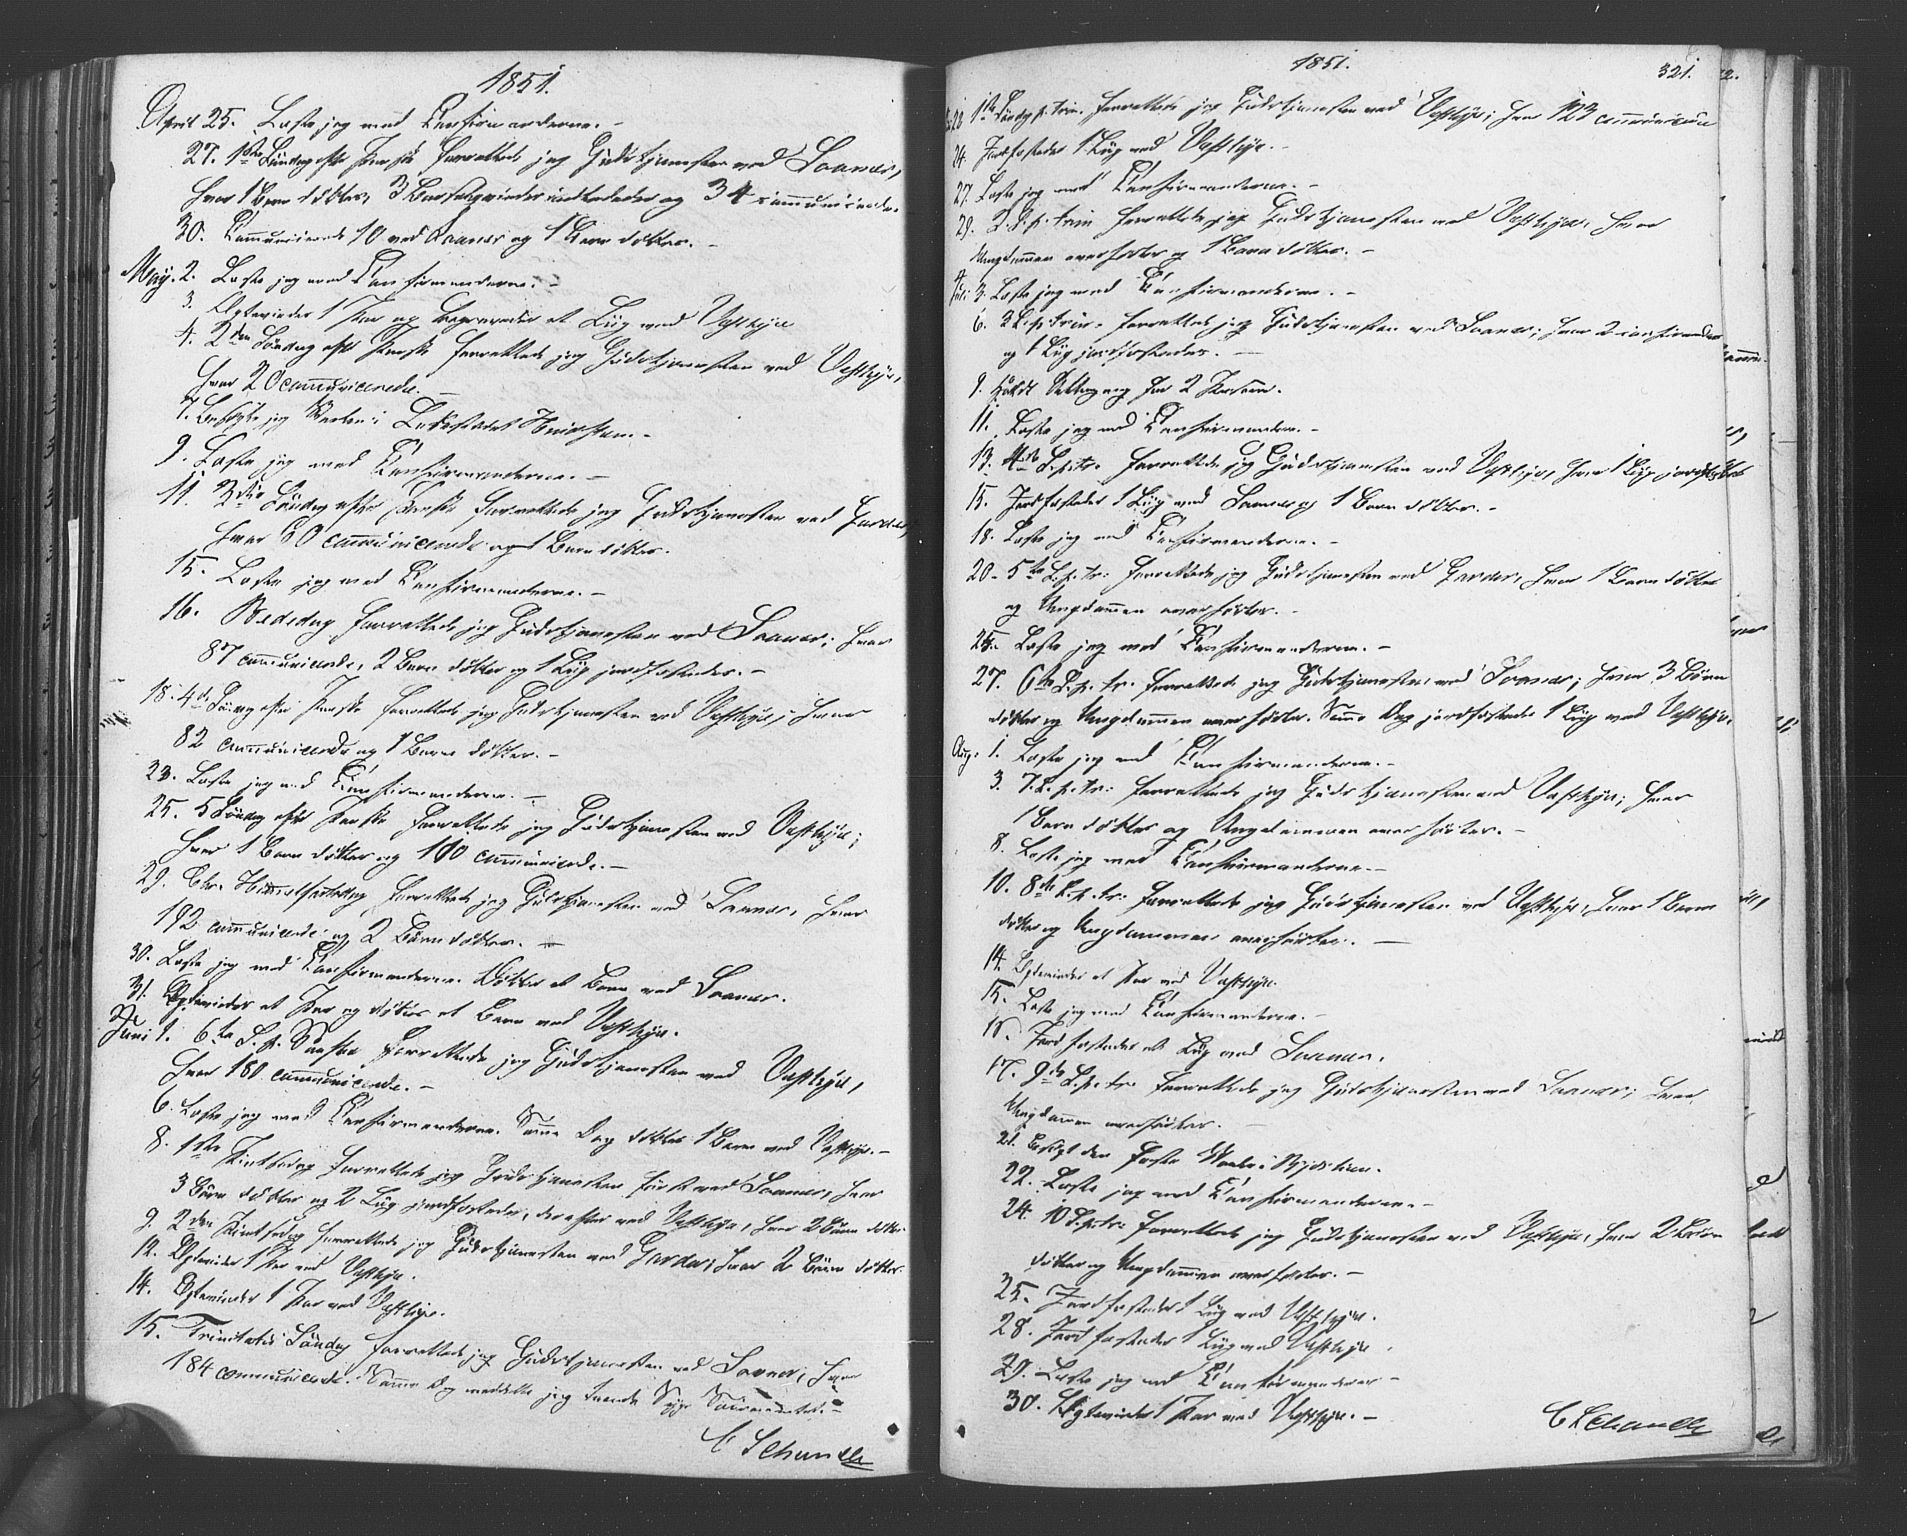 1851.
April 25. Læste jeg med Confirmanderne. -
27. 1ste Søndag efter Paaske forrettede jeg Gudstjenesten ved Soanes,
hvor 1 Barn døbtes, 3 Barselqvinder indlededes og 34 communicerede.
30. Communicerede 10 ved Soanes og 1 Barn døbtes. -
May. 2. Læste jeg med Confirmanderne. -
3. Egteviedes 1 Par og begravedes et Liig ved Vestbye
4. 2den Søndag efter Paaske forrettede jeg Gudstjenesten ved Vestbye,
hvor 20 communicerede. -
7. Besøgte jeg Skolen i
9. Læste jeg med Confirmanderne. -
11. 3die Søndag efter Paaske forrettede jeg Gudstjenesten ved Garder,
hvor 60 communicerede og 1 Barn døbtes.
15. Læste jeg med Confirmanderne. -
16. Bededag forrettede jeg Gudstjenesten ved Soanes; hvor
87 communicerede, 2 Børn døbtes og 1 Liig jordfæstedes. -
18. 4de Søndag efter Paaske forrettede jeg Gudstjenesten ved Vestbye; hvor
82 communicerede og 1 Barn døbtes. -
23. Læste jeg med Confirmanderne. -
25. 5 Søndag efter Paaske forrettede jeg Gudstjenesten ved Vestbye;
hvor 1 Barn døbtes og 100 communicerede. -
29. Chr. Himmelfartsdag forrettede jeg Gudstjenesten ved Soanes, hvor
192 communicerede og 2 Børn døbtes. -
30. Læste jeg med Confirmanderne. Døbtes et Barn ved Soanes.
31. Egteviedes et Par og døbtes et Barn ved Vestbye.
Juni 1. 6te S. p. Paaske forrettede jeg Gudstjenesten ved Vestbye,
hvor 180 communicerede. -
6. Læste jeg med Confirmanderne. Samme Dag døbtes 1 Barn ved Vestbye. -
8. 1ste Pintsedag forrettede jeg Gudstjenesten først ved Soanes, hvor
3 Børn døbtes og 2 Liig jordfæstedes, derefter ved Vestbye, hvor 2 Børn døbtes
9. 2den Pintsedag forrettede jeg Gudstjenesten ved Garder, hvor 2 Børn døbtes.
12. Egteviedes 1 Par ved Vestbye.
14. Egteviedes 1 Par ved Vestbye.
15. Trinitatis Søndag forrettede jeg Gudstjenesten ved Soanes, hvor
184 communicerede. Samme Dag meddelte jeg tvende Syge Sacramentet. -
C Schandle
1851. 321.
22 1ste Søndag p. trin. forrettede jeg Gudstjenesten ved Vestbye; hvor 123 communicerede
24. Jordfæstedes 1 Liig ved Vestbye. -
27. Læste jeg med Confirmanderne. -
29. 2. S. p. trin forrettede jeg Gudstjenesten ved Vestbye, hvor
Ungdommen overhørtes og 1 Barn døbtes. -
Juli 3. Læste jeg med Confirmanderne. -
6. 3 S. p. trin. forrettede jeg Gudstjenesten ved Soanes; hvor 2
og 1 Liig jordfæstedes. -
9. Holdt for 2 Personer.
11. Læste jeg med Confirmanderne. -
13. 4de S. p. tr. forrettede jeg Gudstjenesten ved Vestbye, hvor 1 Liig jordfæstedes
15. Jordfæstedes 1 Liig ved Soanes og 1 Barn døbtes. -
18. Læste jeg med Confirmanderne. -
20. 5te S. p. tr. forrettede jeg Gudstjenesten ved Garder, hvor 1 Barn døbtes
og Ungdommen overhørtes. -
25. Læste jeg med Confirmanderne. -
27. 6te S. p. tr. forrettede jeg Gudstjenesten ved Soanes; hvor 3 Børn
døbtes og Ungdommen overhørtes. Samme Dag jordfæstedes 1 Liig ved Vestbye.
Aug. 1. Læste jeg med Confirmanderne. -
3. 7. S. p. tr. forrettede jeg Gudstjenesten ved Vestbye; hvor
1 Barn døbtes og Ungdommen overhørtes. -
8. Læste jeg med Confirmanderne. -
10. 8de S. p. tr. forrettede jeg Gudstjenesten ved Vestbye, hvor 1 Barn
døbtes og Ungdommen overhørtes. -
14. Egteviedes et Par ved Vestbye.
15. Læste jeg med Confirmanderne. -
Jordfæstedes et Liig ved Soanes.
17. 9de S. p. tr. forrettede jeg Gudstjenesten ved Soanes; hvor
Ungdommen overhørtes. -
21. Besøgt den faste Skole i
22. Læste jeg med Confirmanderne. -
24. 10 S. p. tr. forrettede jeg Gudstjenesten ved Vestbye, hvor 2 Børn
døbtes og Ungdommen overhørtes. -
25. Jordfæstedes 1 Liig ved Vestbye.
28. Jordfæstedes 1 Liig ved Vestbye.
29. Læste jeg med Confirmanderne -
30. Egteviedes 1 Par ved Vestbye. -
C Schandle